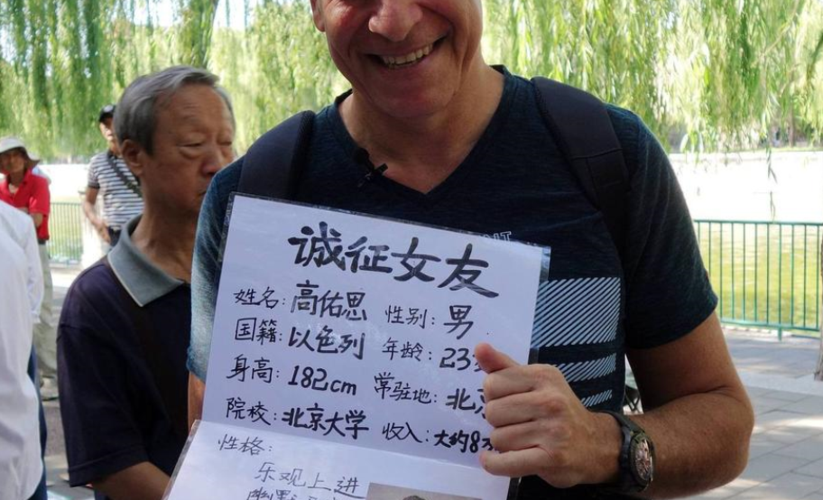 诚征女友
姓名: 高佑思 性别: 男
国籍: 以色列 年龄: 23
身高: 182cm 常驻地: 北
院校: 北京大学 收入: 大约8
性格:
乐观上进
幽默